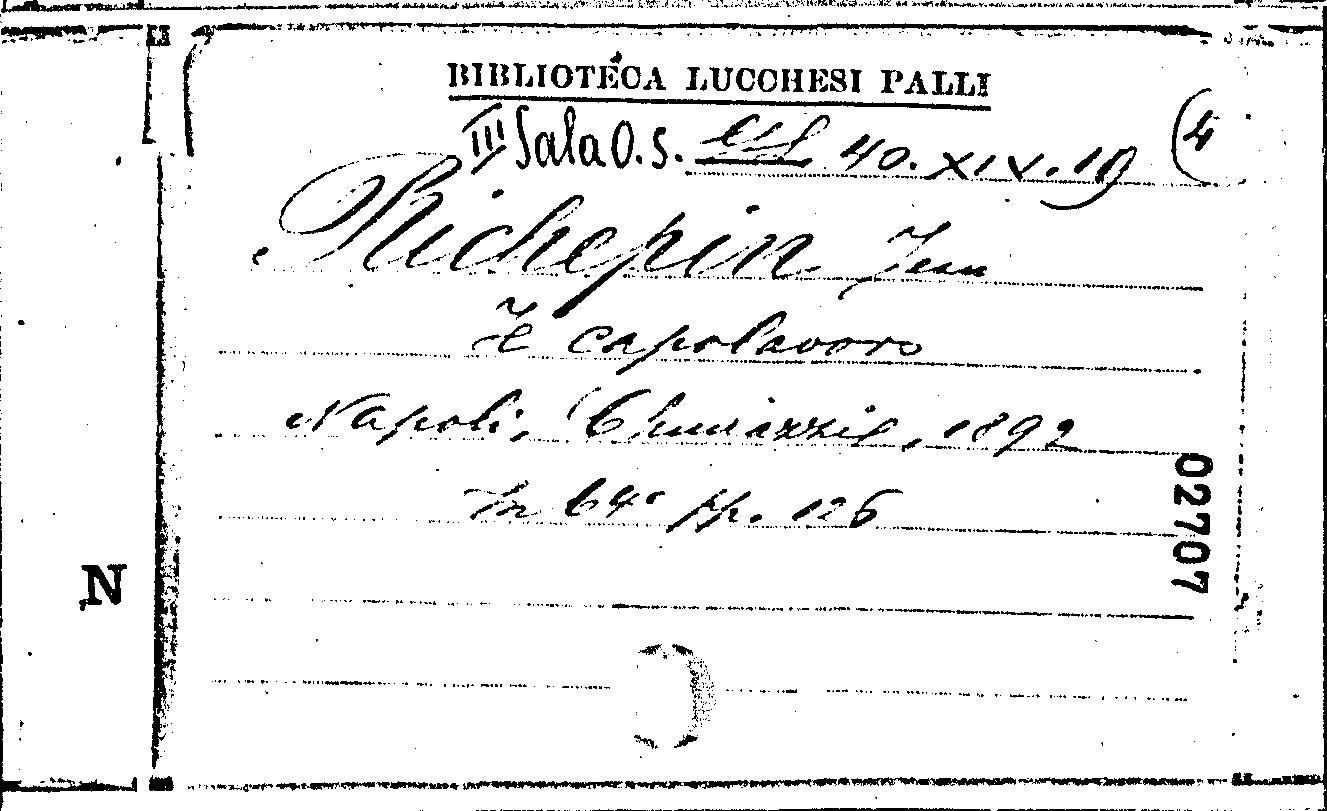 BIBLIOTECA LUCCHESI PALLI
III Sala O. S. 40. XIV. 19 (4
Richepin Jean
Il capolavoro
Napoli, Chiurazzi, 1892
In 64° pp. 126
02707
N